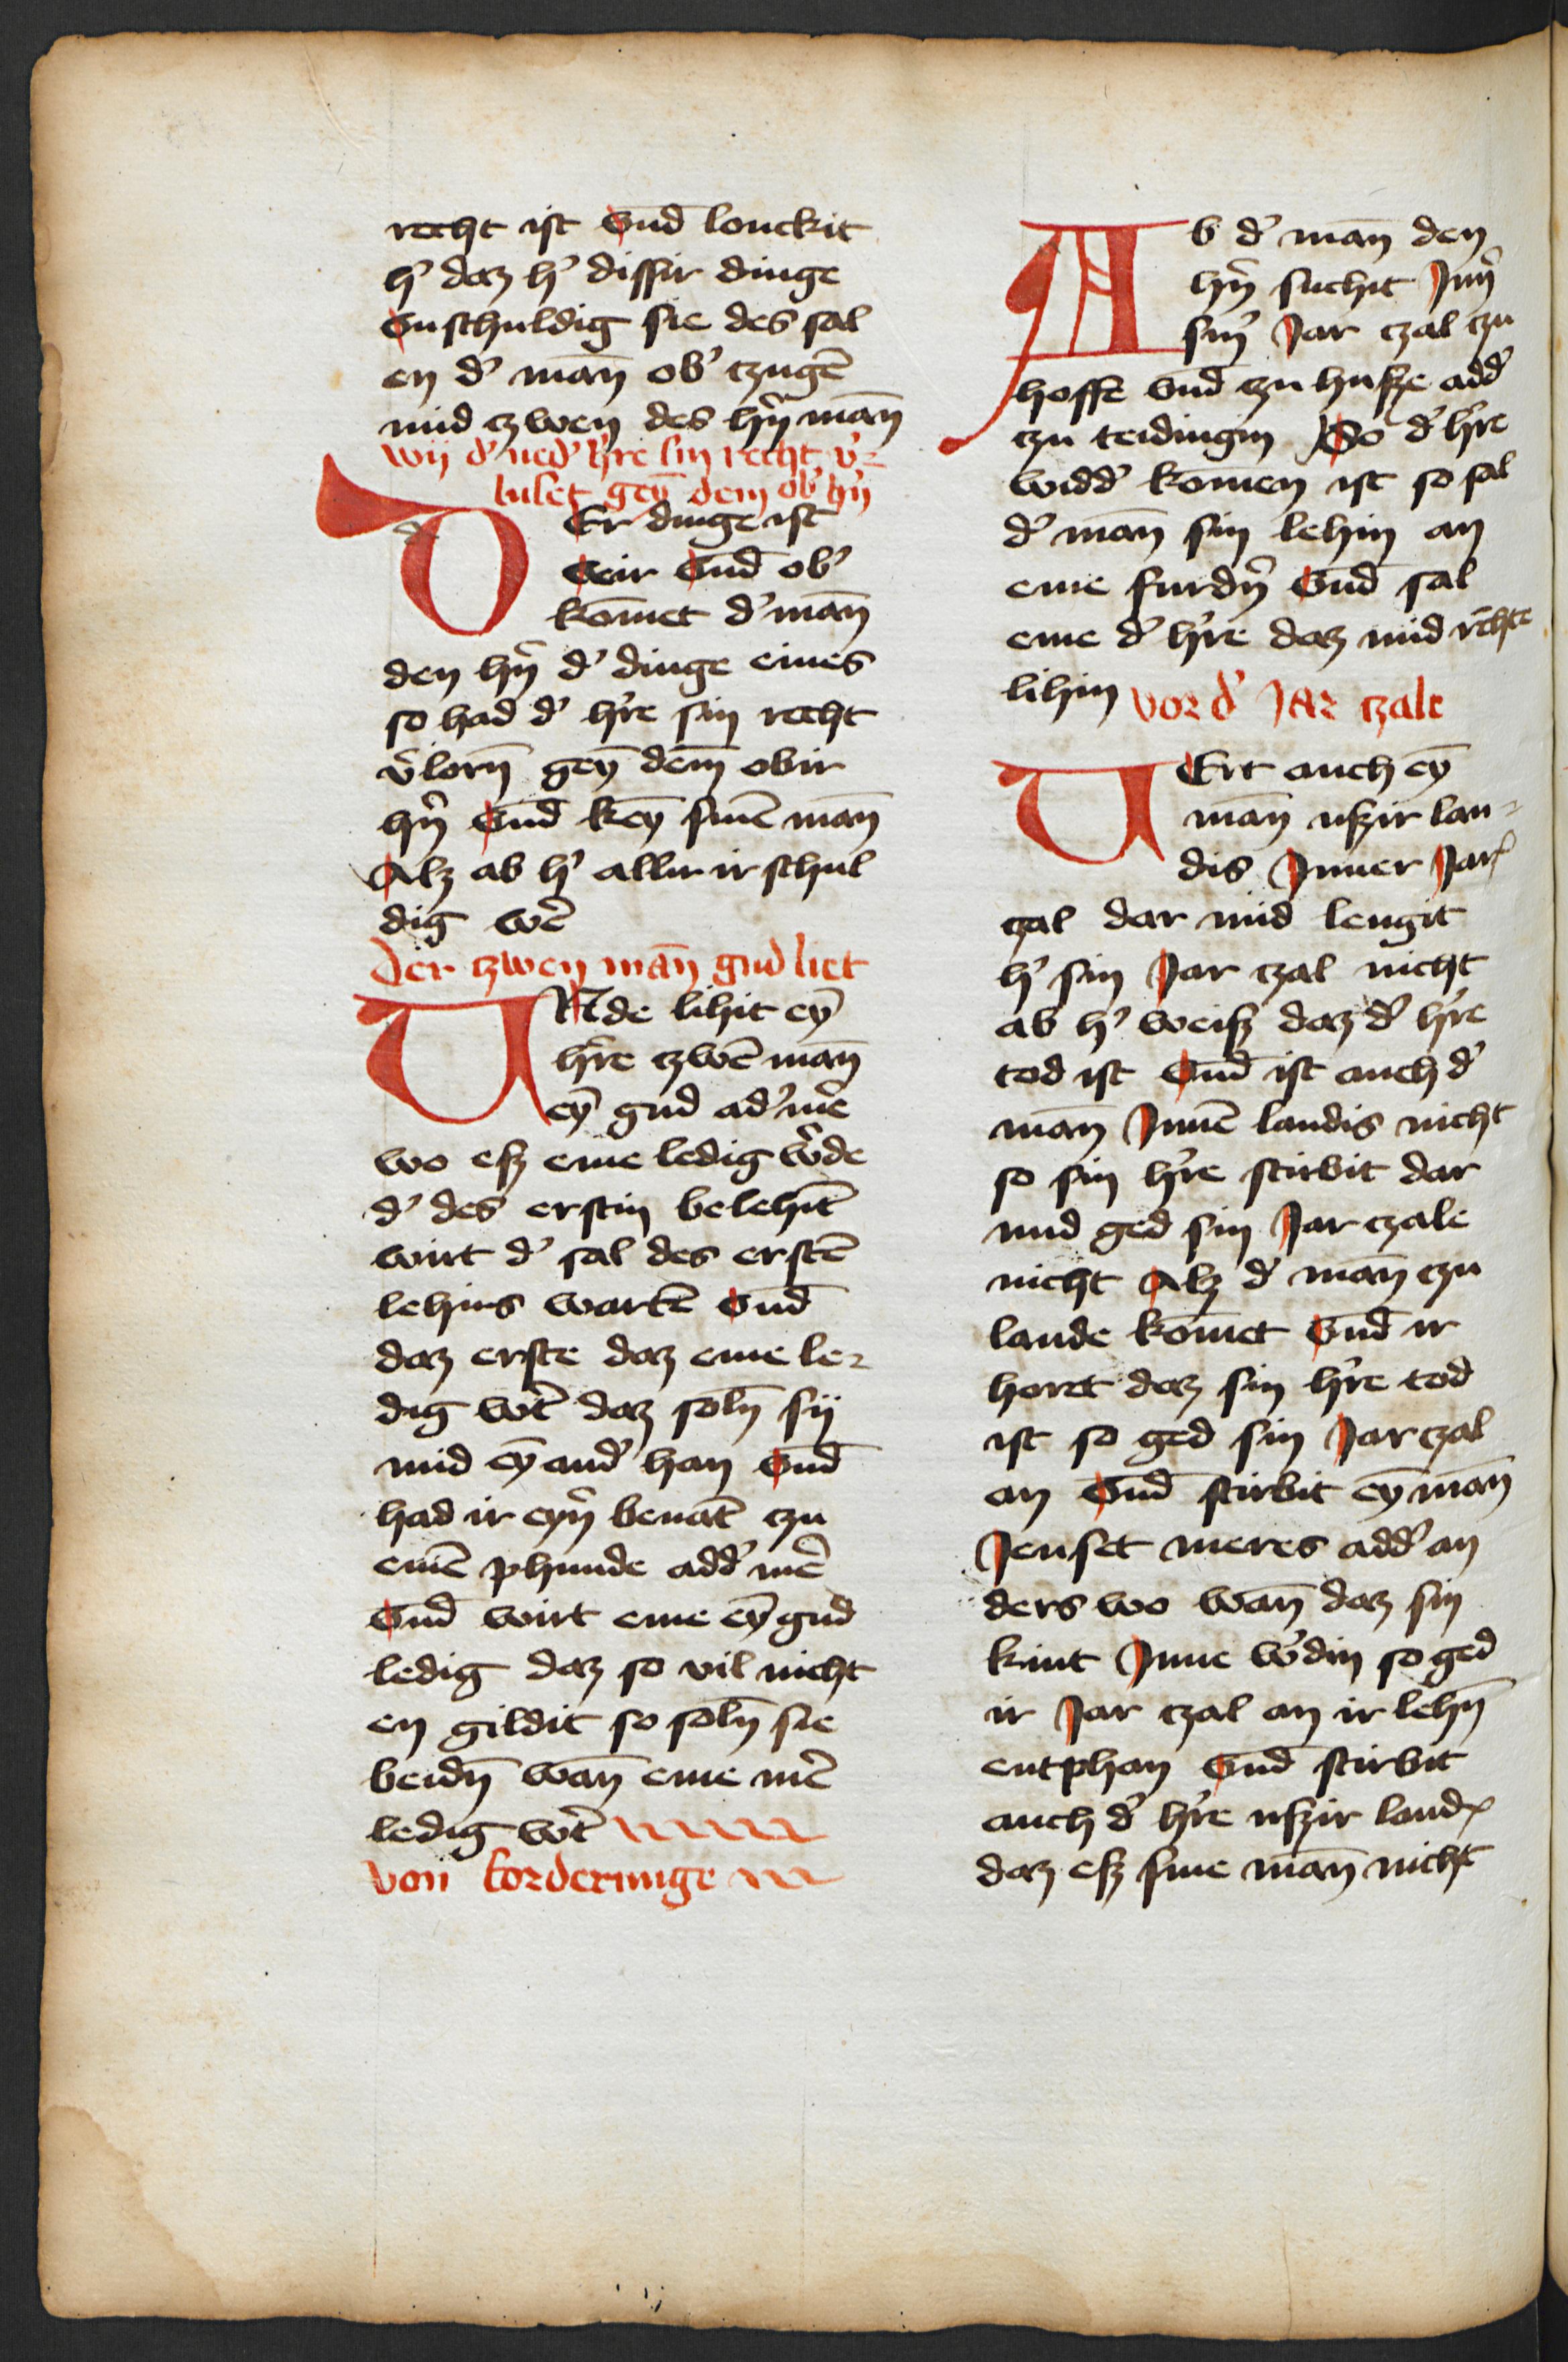 recht ist vnd̄ louckit
h' daz h' dissir dinge
vnschuldig sie des sal
en d' man̄ ob' tzugē
mid zwen des hr̄n man̄
wij d' ned' h're sin recht v'-
luset gen̄ dem ob' hr̄n
DEr dinge ist
veir vnd̄ ob'
kom̄et d' man̄
den hr̄n d' dinge eines
so had d' h're sin recht
v'lorn̄ geȳ dem̄ obir
hr̄n vnd̄ keȳ sinē man̄
Alz ab h' allir ir schul
dig wē
Der zwen man̄ gud liet
VNde lihit eȳ
h're zwē man̄
eȳ gud ad' mē
wo esz eme ledig w'de
d' des erstin belehīt
wirt d' sal des erstē
lehins wartē vnd̄
daz erste daz eme le-
dig w't daz soln̄ sij
mid eȳ and' han vnd̄
had ir eyn̄ benāt tzu
einē phunde add' mē
vnd̄ wirt eme eȳ gud
ledig daz so vil nicht
en gildit so soln̄ sie
beidn̄ wan̄ eme mē
ledig w't
von forderunge
AB d' man̄ den
hr̄n suchit Inn̄
sin' Jar tzal tzu
hoffe vnd̄ tzu husze add'
tzu teidingin So d' h're
widd' kom̄en ist so sal
d' man̄ sin lehin an
eme furdn̄ vnd̄ sal
eme d' h're daz mid rechte
lihin vor d' Jar tzale
VErt auch eȳ
man̄ uszir lan-
dis Inner Jar
tzal dar mid lengit
h' sin Jar tzal nicht
ab h' weisz daz d' h're
tod ist vnd̄ ist auch d'
man̄ Innē landis nicht
so sin h're stirbit dar
mid ged sin Jar tzale
nicht Alz d' man̄ tzu
lande kom̄et vnd̄ ir
horet daz sin h're tod
ist so ged sin Jar tzal
an vnd̄ stirbit eȳ man̄
Jenset meres add' an
ders wo wan̄ daz sin
kint Inne w'din so ged
ir Jar tzal an ir lehn̄
entphan vnd̄ stirbit
auch d' h're uszir land
daz esz sine man̄ nicht